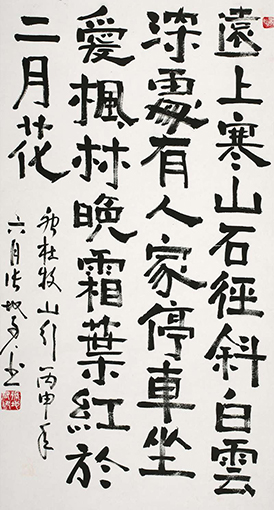 遠上寒山石徑斜白雲
深處有人家停車坐
愛楓林晚霜葉紅於
二月花
杜牧山行丙申年
六月